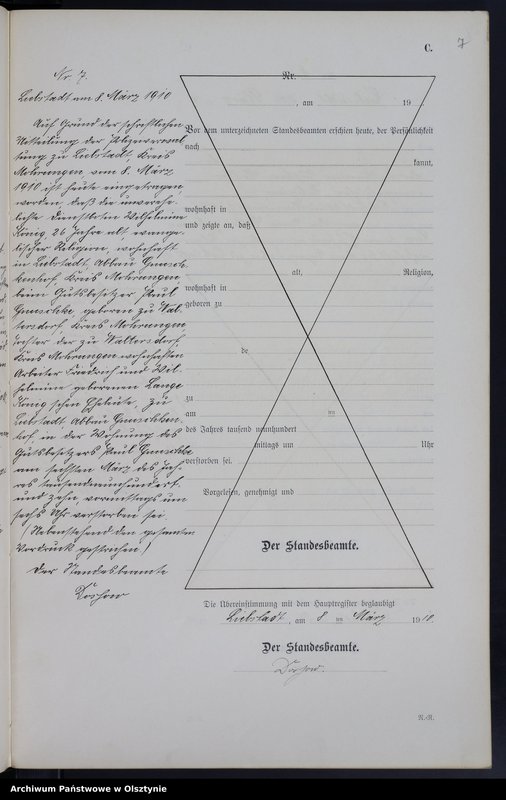 C.
7
Nr. 7.
Liebstadt am 8. März 1910
Auf Grund der schriftlichen
Mitteilung der Polizeiverwal
tung zu Liebstadt, Kreis
Mohrungen vom 8. März
1910 ist heute eingetragen
worden, daß die unverehe-
lichte Dienstboten Wilhelmine
König, 26 Jahre alt, evange-
lischer Religion, wohnhaft
in Liebstadt, Abbau
Kreis Mohrungen,
beim Gutsbesitzer Paul
geboren zu Wal
tersdorf, Kreis Mohrungen,
Tochter der zu Waltersdorf,
Kreis Mohrungen wohnhaften
Arbeiter Friedrich und Wil-
helmine geborenen Lange
König'schen Eheleute, zu
Liebstadt, Abbau
hof, in der Wohnung des
Gutsbesitzers Paul
am sechsten März des Jah-
res tausendneunhundert
und zehn, vormittags um
sechs Uhr verstorben sei.
(Nebenstehend den gesamten
Vordruck gestrichen)
Der Standesbeamte
Nr.
, am 19
Vor dem unterzeichneten Standesbeamten erschien heute, der Persönlichkeit
nach
kannt,
wohnhaft in
und zeigte an, daß
alt, Religion,
wohnhaft in
geboren zu
de
zu
am im
des Jahres tausend neunhundert
mittags um Uhr
verstorben sei.
Vorgelesen, genehmigt und
Der Standesbeamte.
Die Übereinstimmung mit dem Hauptregister beglaubigt
Liebstadt, am 8 im März 1910.
Der Standesbeamte.
R.-R.
Archiwum Państwowe w Olsztynie